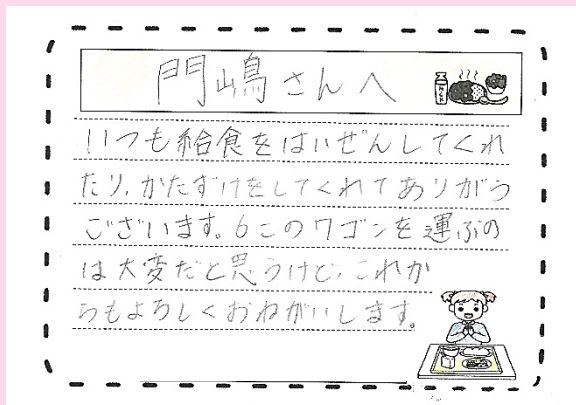 門嶋さんへ
いつも給食をはいぜんしてくれ
たり、かたずけをしてくれてありがとう
ございます。6このワゴンを運ぶの
は大変だと思うけど、これか
らもよろしくおねがいします。